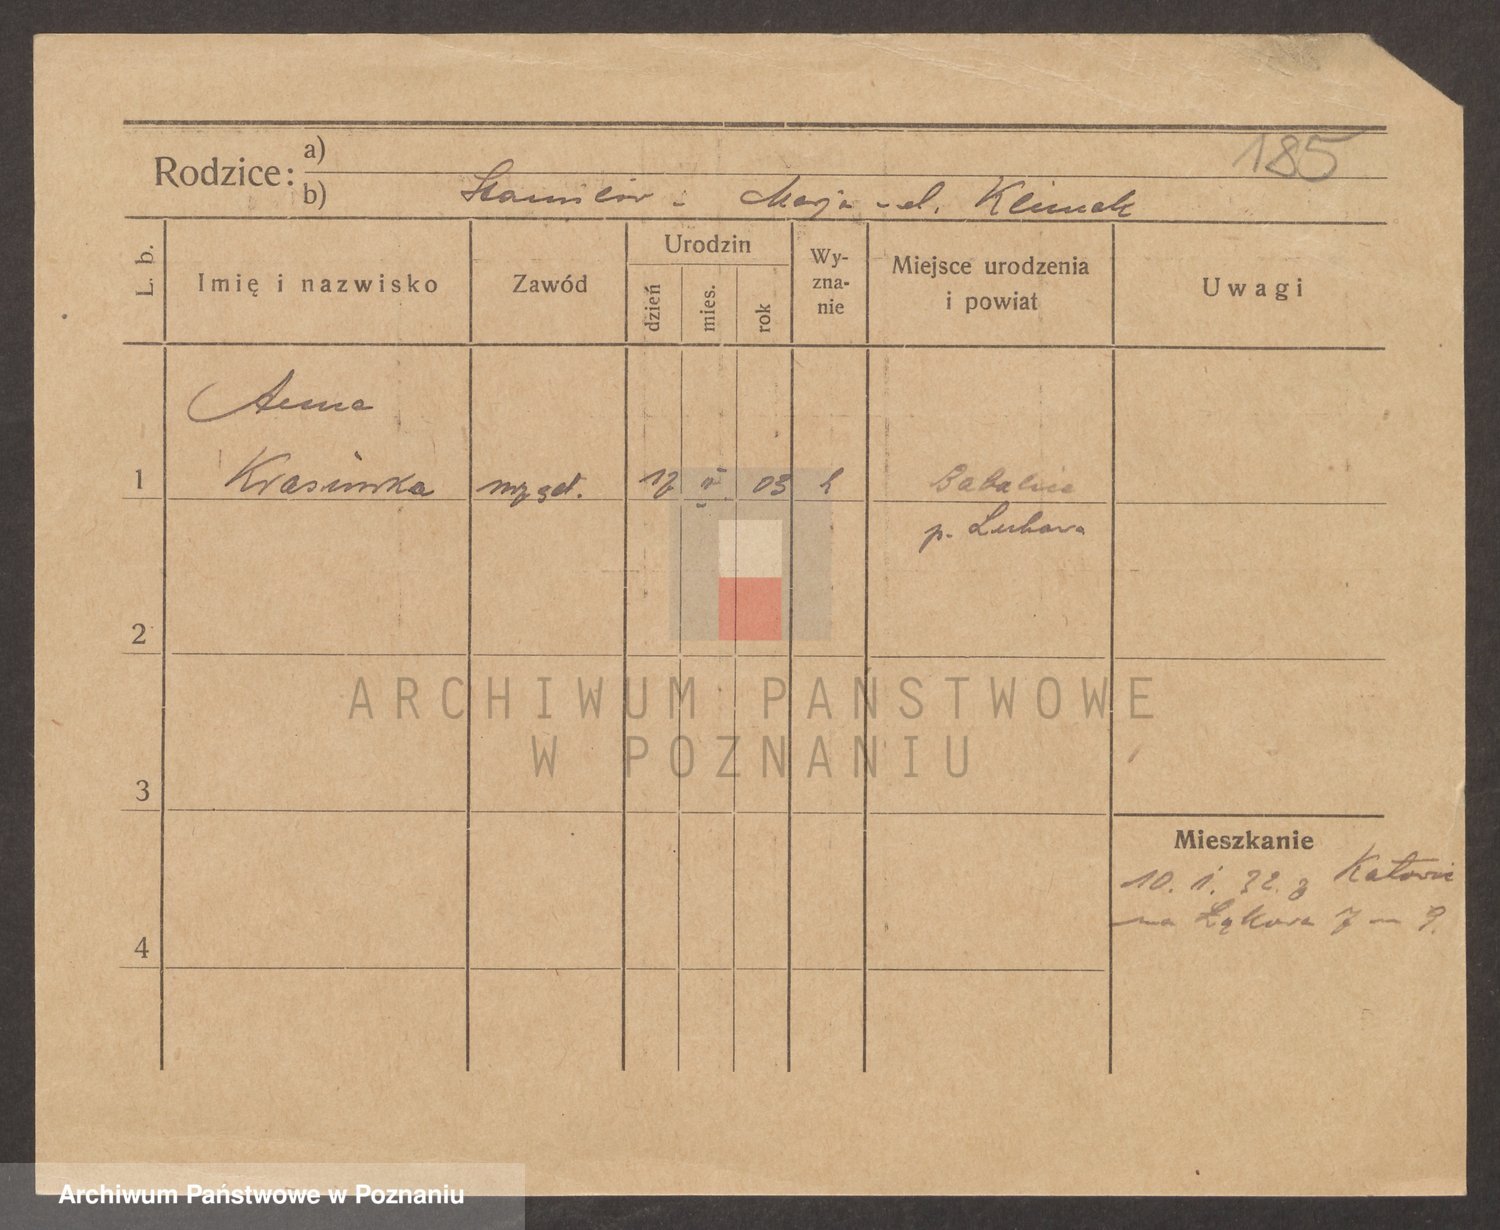 185
Rodzice: a)
b) Stanisław - Marja - d. Klimek
L. b.
Imię i nazwisko
Zawód
Urodzin
dzień
mies.
rok
Wy-
zna-
nie
Miejsce urodzenia
i powiat
Uwagi
Anna
1 Krasińska 03
p.
2
3
4
Mieszkanie
10. 1. 32. z Katowic
na Łąkowa 7 m 9.
ARCHIWUM PAŃSTWOWE
W POZNANIU
Archiwum Państwowe w Poznaniu